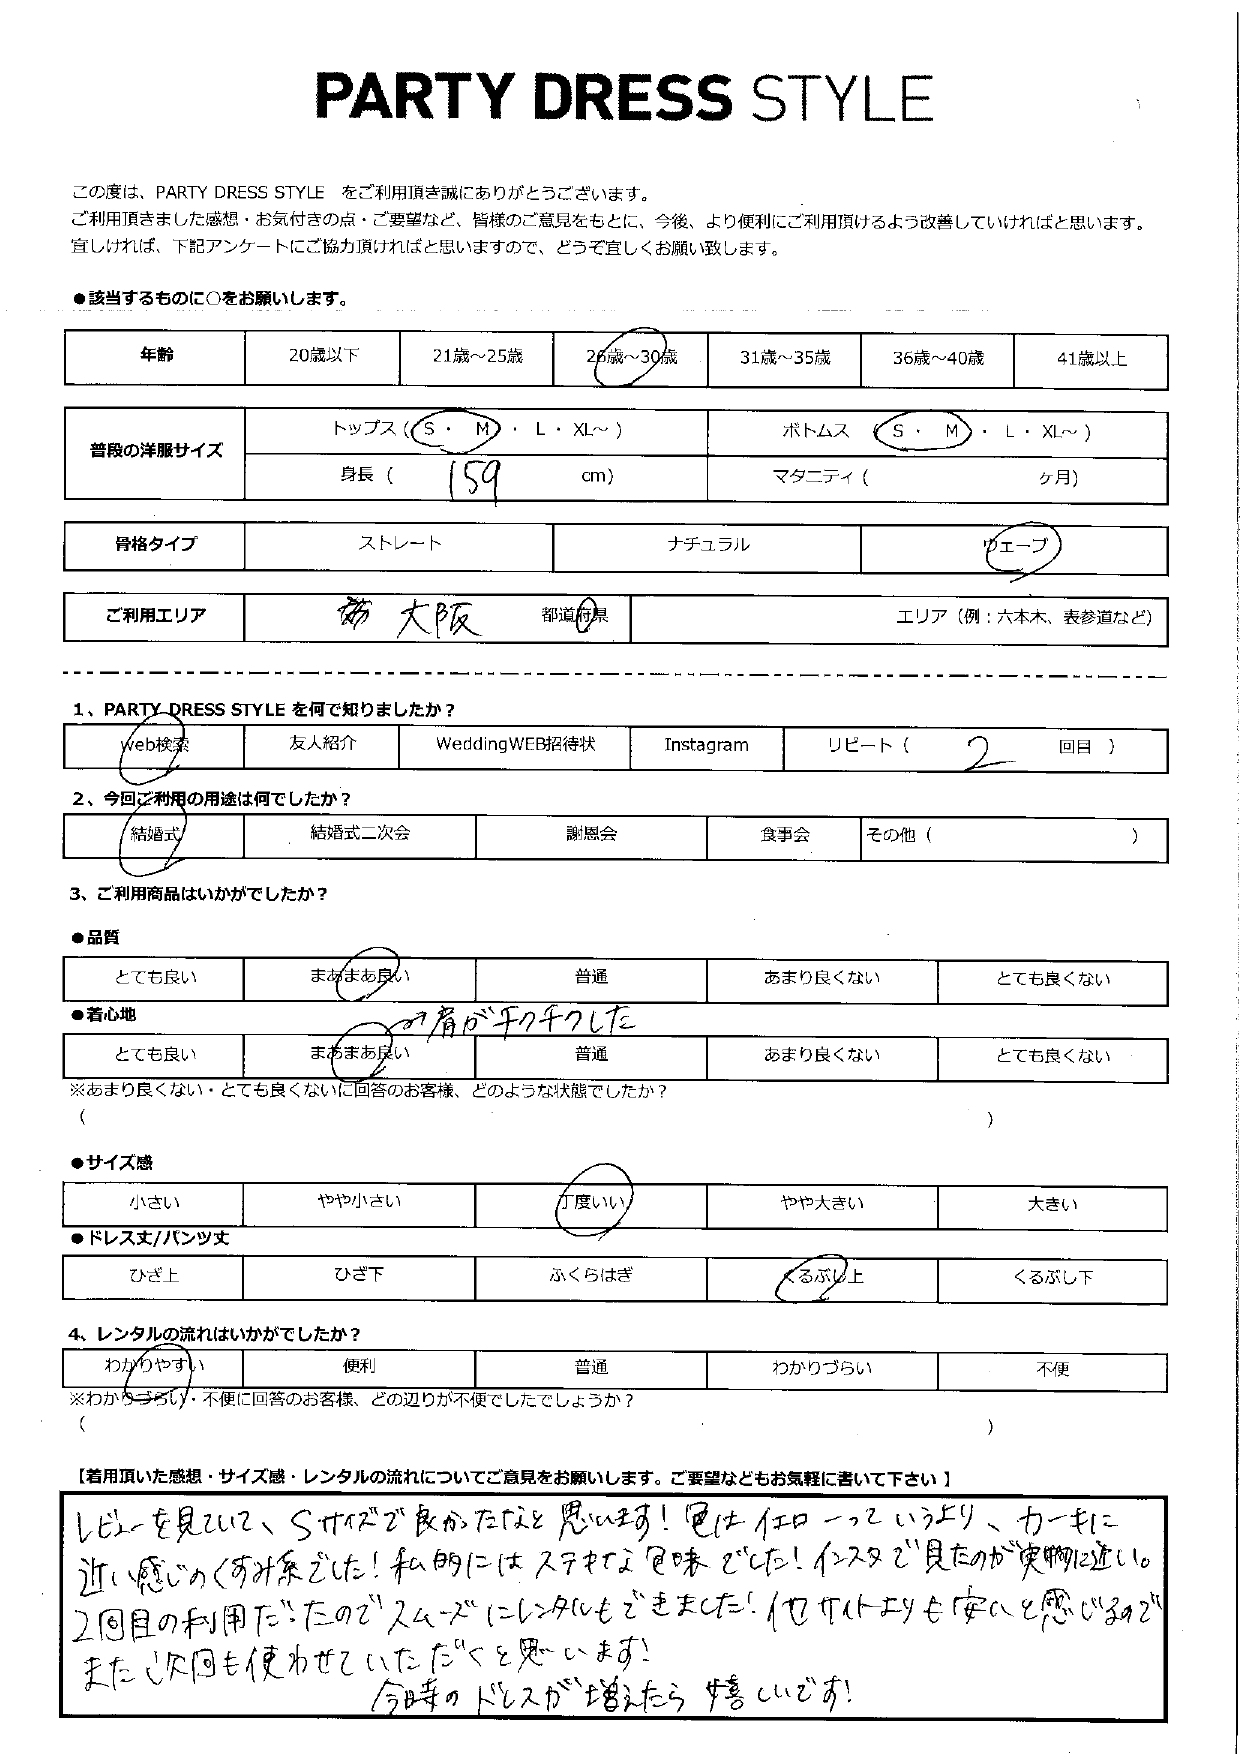 PARTY DRESS STYLE
この度は、PARTY DRESS STYLE をご利用頂き誠にありがとうございます。
ご利用頂きました感想・お気付きの点・ご要望など、皆様のご意見をもとに、今後、より便利にご利用頂けるよう改善していければと思います。
宜しければ、下記アンケートにご協力頂ければと思いますので、どうぞ宜しくお願い致します。
●該当するものに○をお願いします。
年齢 20歳以下 21歳～25歳 26歳～30歳 31歳～35歳 36歳～40歳 41歳以上
普段の洋服サイズ トップス ( S ・ M ・ L ・ XL～ ) ボトムス ( S ・ M ・ L ・ XL～ )
身長 ( 159 cm) マタニティ ( ヶ月)
骨格タイプ ストレート ナチュラル ウェーブ
ご利用エリア 大阪 都道府県 エリア（例：六本木、表参道など）
1、PARTY DRESS STYLE を何で知りましたか？
web検索 友人紹介 WeddingWEB招待状 Instagram リピート ( 2 回目 )
2、今回ご利用の用途は何でしたか？
結婚式 結婚式二次会 謝恩会 食事会 その他 ( )
3、ご利用商品はいかがでしたか？
●品質
とても良い まあまあ良い 普通 あまり良くない とても良くない
●着心地
→肩がチクチクした
とても良い まあまあ良い 普通 あまり良くない とても良くない
※あまり良くない・とても良くないに回答のお客様、どのような状態でしたか？
( )
●サイズ感
小さい やや小さい 丁度いい やや大きい 大きい
●ドレス丈/パンツ丈
ひざ上 ひざ下 ふくらはぎ くるぶし上 くるぶし下
4、レンタルの流れはいかがでしたか？
わかりやすい 便利 普通 わかりづらい 不便
※わかりづらい・不便に回答のお客様、どの辺りが不便でしたでしょうか？
( )
【着用頂いた感想・サイズ感・レンタルの流れについてご意見をお願いします。ご要望などもお気軽に書いて下さい】
レビューを見ていて、Sサイズで良かったなと思います！色はイエローっていうより、カーキに
近い感じのくすみ系でした！私的にはステキな色味でした！インスタで見たのが実物に近い。
2回目の利用だったのでスムーズにレンタルもできました！他サイトよりも安いと感じるので
また次回も使わせていただくと思います！
今時のドレスが増えたら嬉しいです！